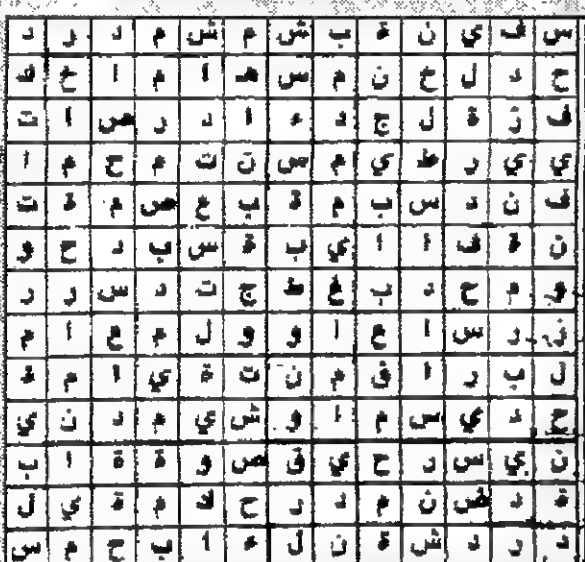 س ف ي ن ة ب ش م ش م د ر د
ح د ل خ ن م س ه ا م ا خ ك
ف ز ة ل ج د ء ا د ر ص ا ت
ي ي ر ظ ي م س ن ت م ح م ا
ف ن د س ب م ة ب ع ص م ة ت
ن ة ف ا ا ي ب ة س ب د ح و
و م ح د ب غ ط ج ت د س ر ر
ز ر س ا ع ا و و ل م ع ا م
ل ب ر ا ق م ن ت ة ي ا م ة
ح د ي س م ا و ش ي م د ن ي
ن ي س ر ح ي ق ص و ة ة ا ب
ة د ض ن م د ر ح ك م ة ي ل
د ر د ش ة ن ل ء ا ب ح م س